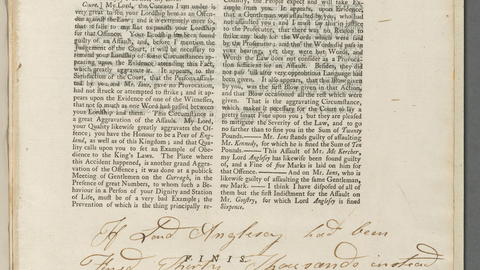 Court.] My Lord, the Concern I am under is
very great to see your Lordship here as an Offen-
der against the Law; and it is extremely more so,
that it falls to my Lot to punish your Lordship
for that Offence. Your Lordship has been found
guilty of an Assault, and, before I mention the
Judgement of the Court, it will be necessary to
remind your Lordship of some Circumstances ap-
pearing upon the Evidence attending this Fact,
which greatly aggravate it. It appears, to the
Satisfaction of the Court, that the Person assault-
ed by you and Mr. Jans, gave no Provocation,
had not struck or attempted to strike; and it ap-
pears upon the Evidence of one of the Witnesses,
that not so much as one Word had passed between
your Lordship and him. This Circumstance is
a great Aggravation of the Assault. My Lord,
your Quality likewise greatly aggravates the Of-
fence; you have the Honour to be a Peer of Eng-
land, as well as of this Kingdom; and that Qua-
lity calls upon you to set an Example of Obedi-
ence to the King's Laws. The Place where
this Accident happened, is another grand Aggra-
vation of the Offence; it was done at a publick
Meeting of Gentlemen on the Curragh, in the
Presence of great Numbers, to whom such a Be-
haviour in a Person of your Dignity and Station
of Life, must be of a very bad Example; the
Prevention of which is the thing principally re-
Country, the People expect and will take Ex-
ample from
that a Gentleman was assaulted by you, who had
not assaulted you; and I must say in this Justice
to the Prosecutor, that there was no Blow
strike any body but the Words which were said
by the Prosecutor; and tho' the Words did pass in
your hearing, yet they were but Words, and
Words the Law does not consider as a Provocati-
on sufficient for an Assault. Besides, they did
not pass 'till after very opprobrious Language had
been given. It also appears, that the Blow given
by you, was the first Blow given in this Action,
and that Blow occasioned all the rest which were
given. That is the aggravating Circumstance,
which makes it necessary for the Court to lay a
pretty smart Fine upon you; but they are pleased
to mitigate the Severity of the Law, and to go
no farther than to fine you in the Sum of Twenty
Pounds.—— Mr. Jans stands guilty of assaulting
Mr. Kennedy, for which he is fined the Sum of Ten
Pounds.—— This Assault of Mr. Mc Kercher,
my Lord Anglesey has likewise been found guilty
of, and a Fine of five Marks is laid on him for
that Offence.—— And on Mr. Jans, who is
likewise guilty of assaulting the same Gentleman,
one Mark. —— I think I have disposed of all of
them but the first Indictment for the Assault on
Mr. Goostry, for which Lord Anglesey is fined
Sixpence.
If Lord Anglesey had been
FINIS.
Fined Thirty Thousands instead